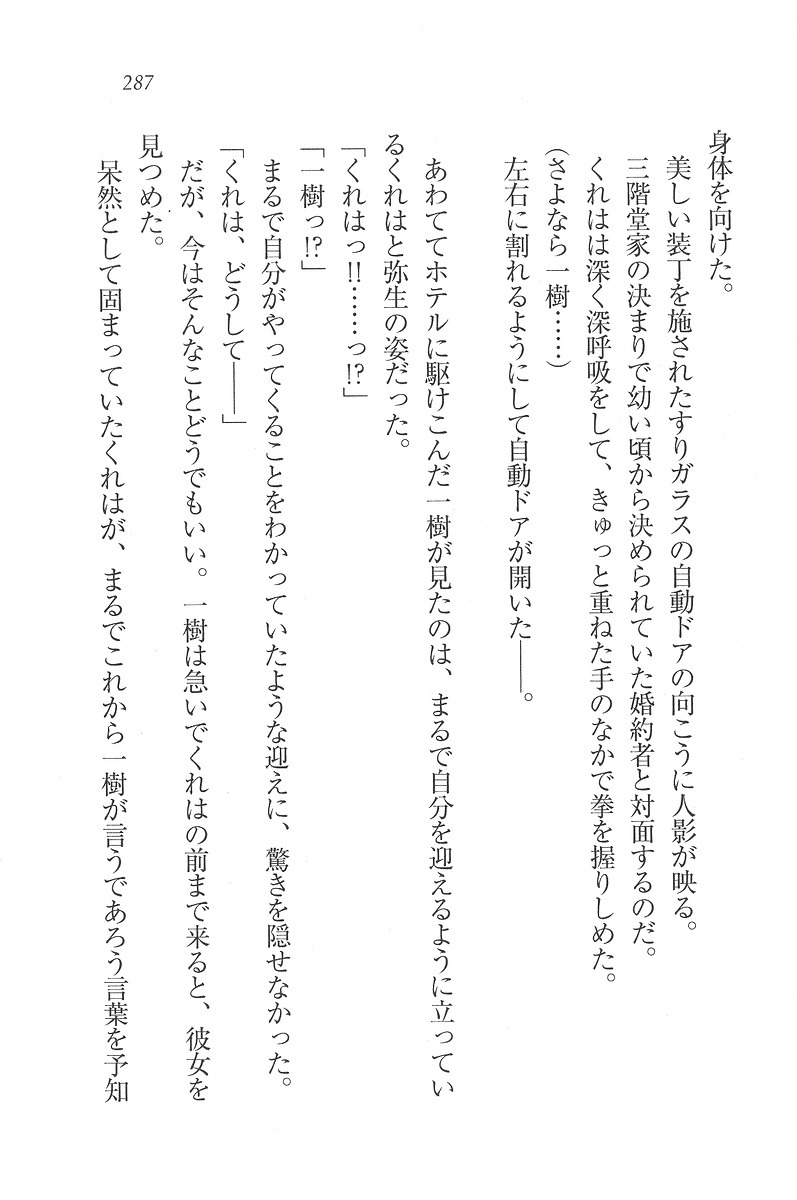 287
身体を向けた。
美しい装丁を施されたすりガラスの自動ドアの向こうに人影が映る。
三階堂家の決まりで幼い頃から決められていた婚約者と対面するのだ。
くれはは深く深呼吸をして、きゅっと重ねた手のなかで拳を握りしめた。
(さよなら一樹……)
左右に割れるようにして自動ドアが開いた――。
あわててホテルに駆けこんだ一樹が見たのは、まるで自分を迎えるように立ってい
るくれはと弥生の姿だった。
「くれはっ!!……っ!?」
「一樹っ!?」
まるで自分がやってくることをわかっていたような迎えに、驚きを隠せなかった。
「くれは、どうして――」
だが、今はそんなことどうでもいい。一樹は急いでくれはの前まで来ると、彼女を
見つめた。
呆然として固まっていたくれはが、まるでこれから一樹が言うであろう言葉を予知